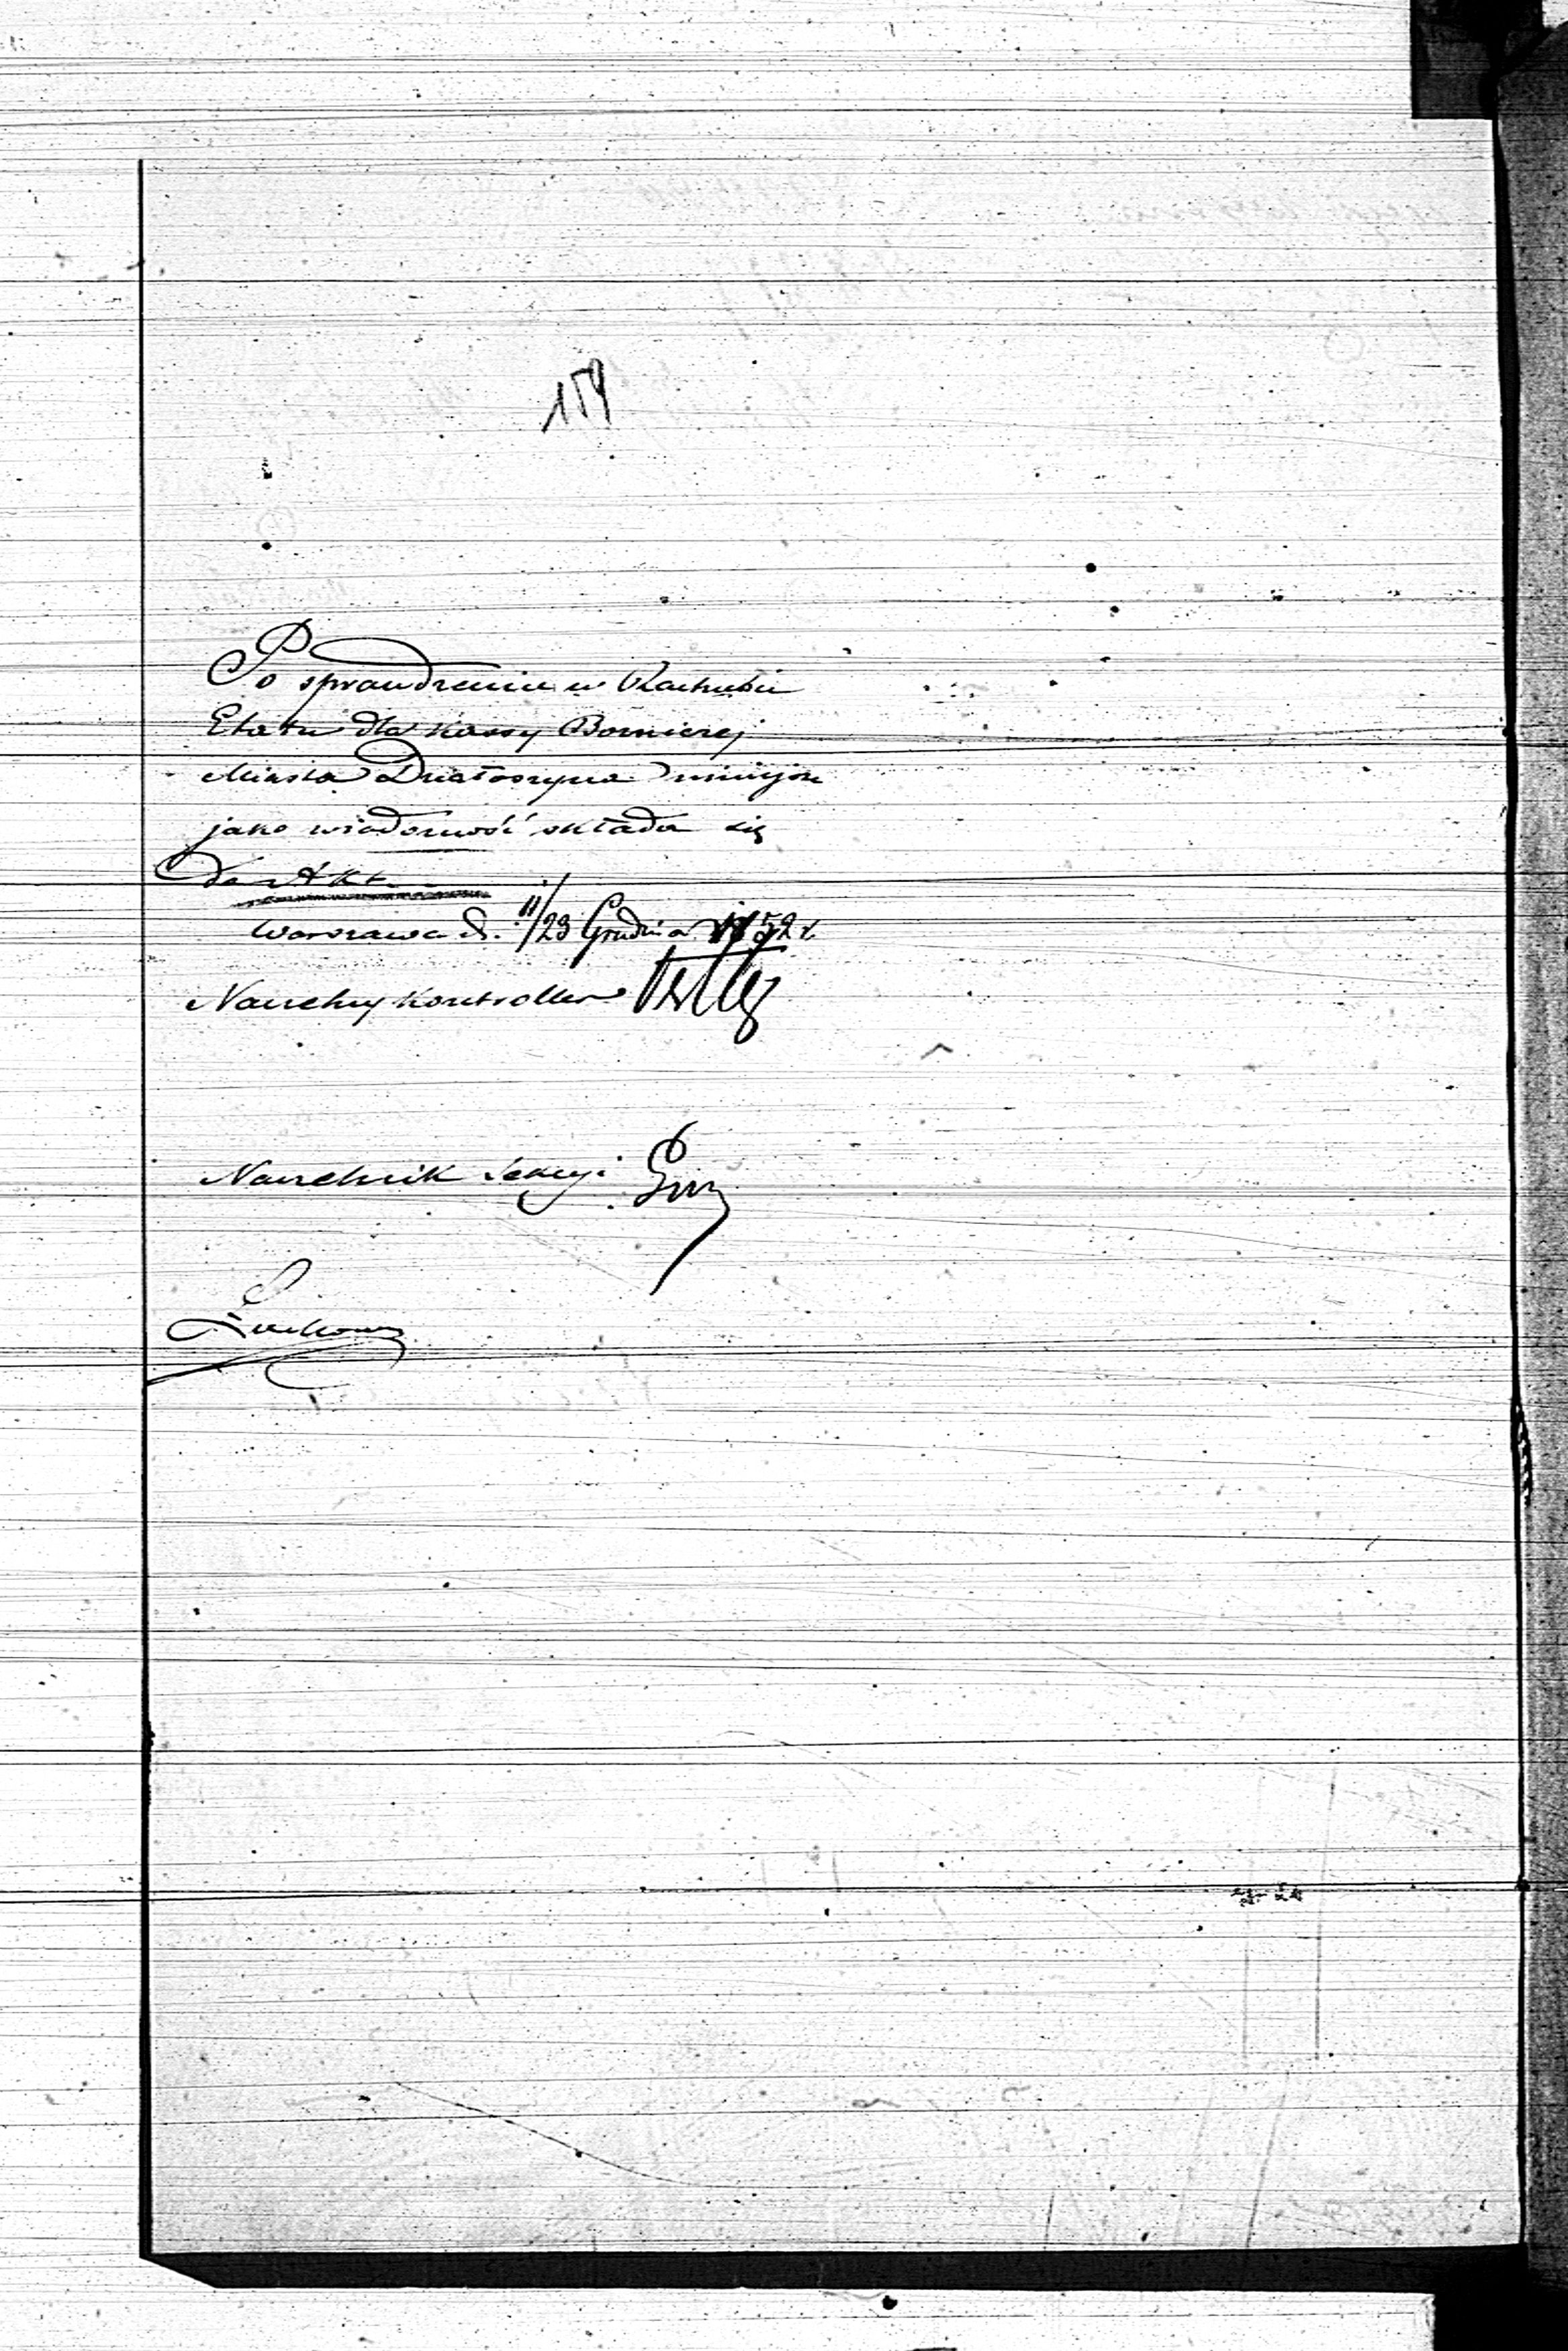 159
Po sprawdzeniu w Rachubie
Etatu dla Kassy Bożniczej
Miasta Działoszyna niniejsze
jako wiadomość składa się
Do Akt.
Warszawa d. 11/23 Grudnia 1852 r.
Naczelny Kontroller
Naczelnik Sekcyi